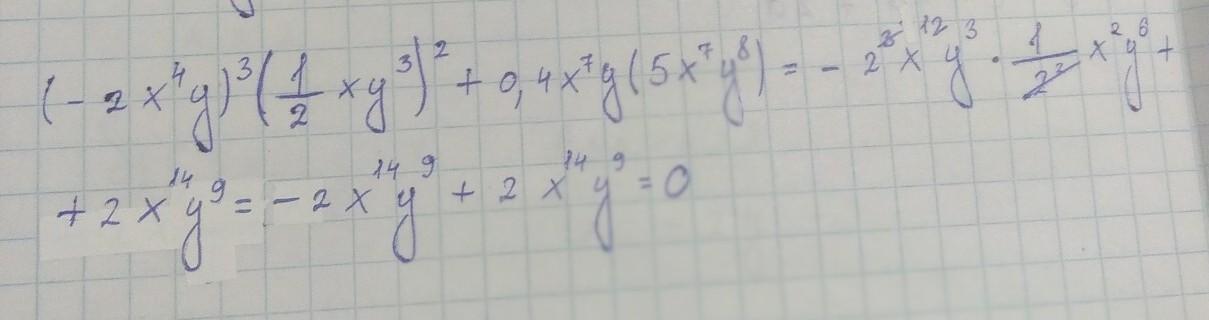 (-2x⁴y)³(1/2 xy³)² + 0,4x⁷y(5x⁷y⁸) = -2³x¹²y³ · 1/2² x²y⁶ +
+ 2x¹⁴y⁹ = -2x¹⁴y⁹ + 2x¹⁴y⁹ = 0